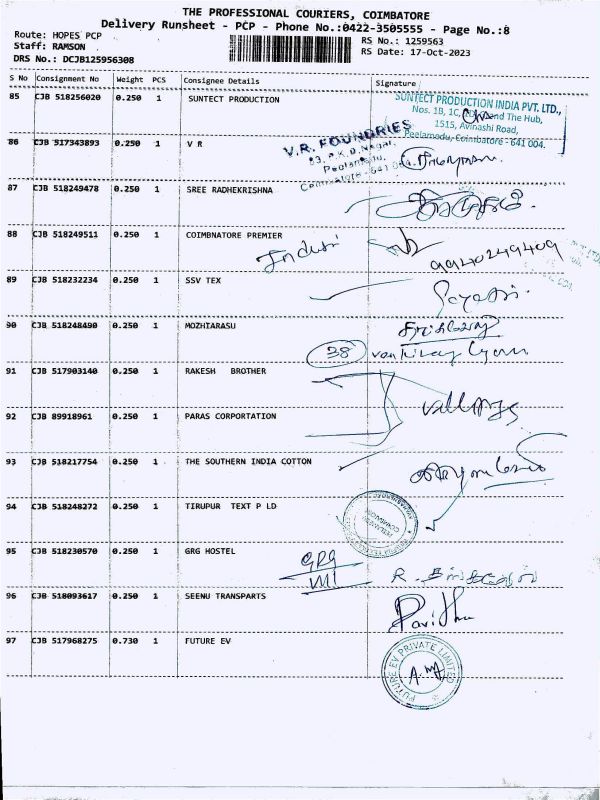 THE PROFESSIONAL COURIERS, COIMBATORE
Delivery Runsheet - PCP - Phone No.:0422-3505555 - Page No.:8
Route: HOPES PCP
Staff: RAMSON
DRS No.: DCJB125956308
RS No.: 1259563
RS Date: 17-Oct-2023
S No Consignment No Weight PCS Consignee Details Signature
85 CJB 518256020 0.250 1 SUNTECT PRODUCTION
SUNTECT PRODUCTION INDIA PVT. LTD.,
Nos. 1B, 1C, and The Hub,
1515, Avinashi Road,
Peelamedu, Coimbatore - 641 004.
86 CJB 517343893 0.250 1 V R
V.R. FOUNDRIES
Nagar,
Peelamedu,
Coimbatore - 641
87 CJB 518249478 0.250 1 SREE RADHEKRISHNA
88 CJB 518249511 0.250 1 COIMBNATORE PREMIER
9940249409
89 CJB 518232234 0.250 1 SSV TEX
90 CJB 518248490 0.250 1 MOZHIARASU
38
91 CJB 517903140 0.250 1 RAKESH BROTHER
92 CJB 89918961 0.250 1 PARAS CORPORTATION
93 CJB 518217754 0.250 1 THE SOUTHERN INDIA COTTON
94 CJB 518248272 0.250 1 TIRUPUR TEXT P LD
95 CJB 518230570 0.250 1 GRG HOSTEL
GRG
96 CJB 518093617 0.250 1 SEENU TRANSPARTS
97 CJB 517968275 0.730 1 FUTURE EV
FUTURE EV PRIVATE LIMITED